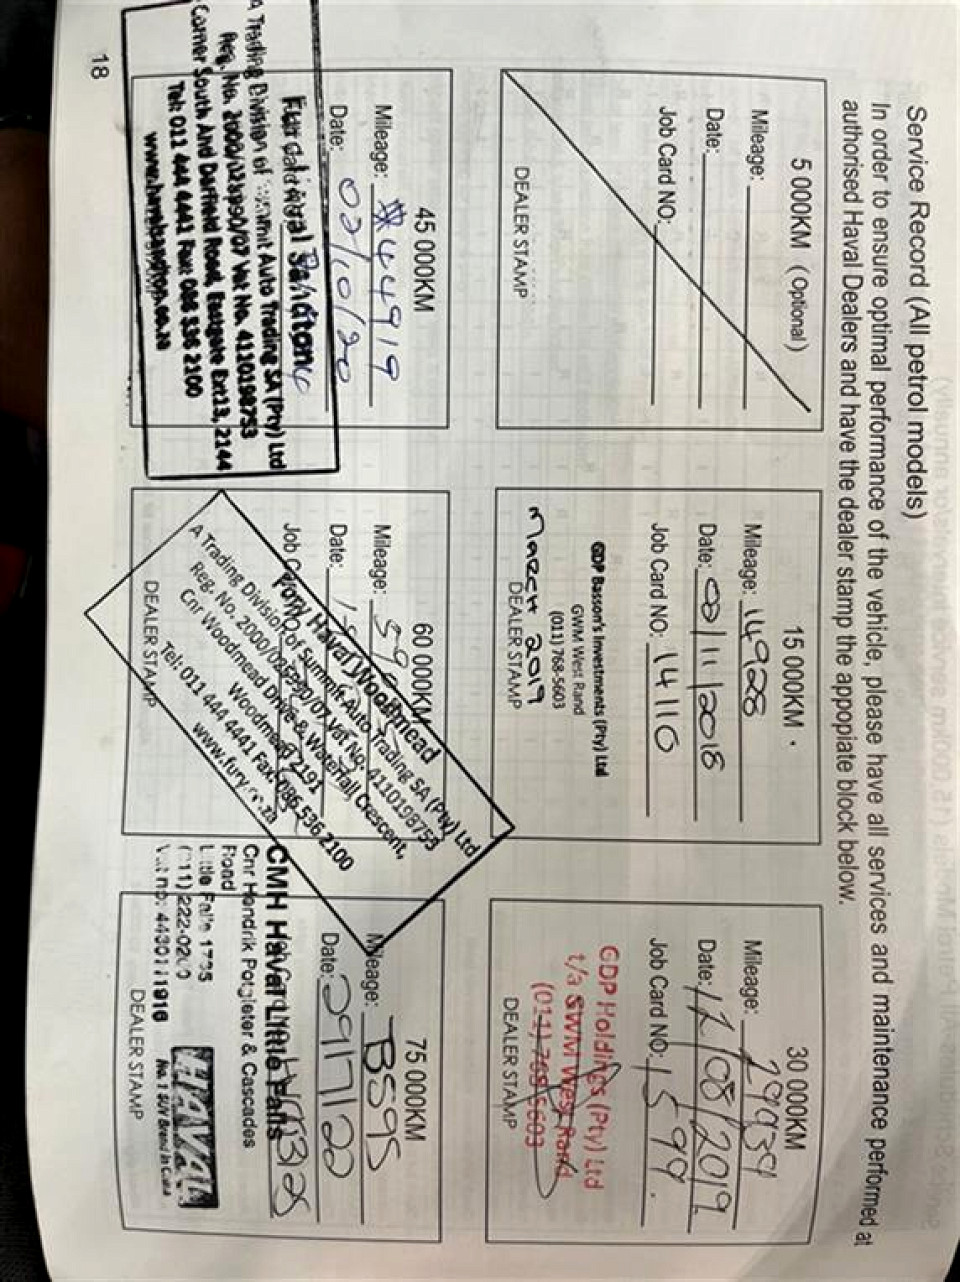 Service Record (All petrol models)
In order to ensure optimal performance of the vehicle, please have all services and maintenance performed at
authorised Haval Dealers and have the dealer stamp the appopiate block below.
5 000KM (Optional)
Mileage:
Date:
Job Card NO:
DEALER STAMP
15 000KM
Mileage: 14928
Date: 08/11/2018
Job Card NO: 14110
GDP Basson's Investments (Pty) Ltd
GWM West Rand
(011) 768-5603
DEALER STAMP
March 2019
30 000KM
Mileage: 29939
Date: 12/08/2019
Job Card NO: 1599
GDP Holdings (Pty) Ltd
t/a SWM West Rand
(011) 768-5603
DEALER STAMP
45 000KM
Mileage: 44919
Date: 02/10/20
Haval Sandton
A Trading Division of Summit Auto Trading SA (Pty) Ltd
Reg. No. Vat No. 4110198753
Corner South And Dartfield Road, Eastgate Ext13, 2144
Tel: 011 444 4441 Fax: 086 536 2100
60 000KM
Mileage:
Date:
Job
Fury Haval Woodmead
A Trading Division of Summit Auto Trading SA (Pty) Ltd
Reg. No. Vat No. 4110198753
Cnr Woodmead Drive & Waterfall Crescent,
Woodmead 2191
Tel: 011 444 4441 Fax: 086 536 2100
DEALER STAMP
75 000KM
Mileage:
Date: 29/7/22
CMH Haval Little Falls
Cnr Hendrik Potgieter & Cascades
Road
Little Falls 1735
(011) 222-02
Vat no: 4430111916
HAVAL
No.1 SUV Brand in China
DEALER STAMP
18